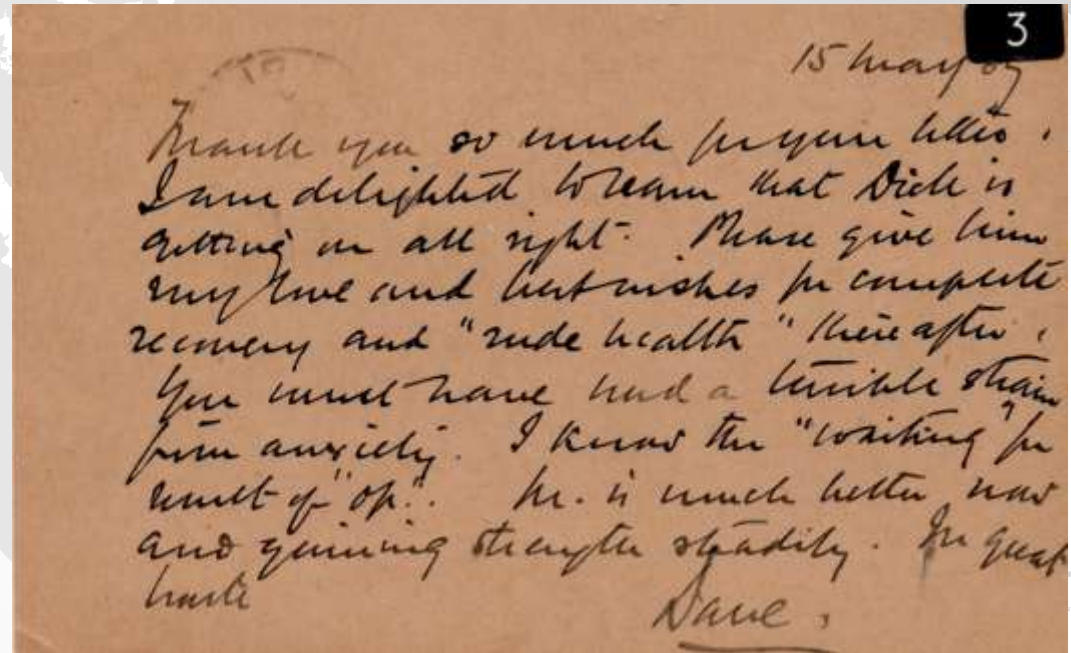 3
15 May
Thank you so much for your letter.
I am delighted to learn that Dick is
getting on all right. Please give him
my love and best wishes for complete
recovery and "rude health" thereafter.
You must have had a terrible strain
from anxiety. I know the "waiting" for
result of "op". is much better now
and gaining strength steadily. In great
haste
Dave.